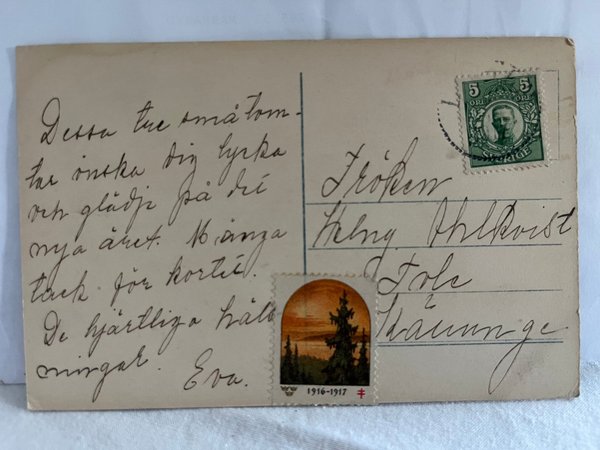 Dessa tre småtom-
tar önska dig lycka
och glädje på det
nya året. Många
tack för kortet.
De hjärtliga häls
ningar.
Eva.
5 5
ÖRE ÖRE
SVERIGE
Fröken
Helny Ahlkvist
Tole
Skänninge
1916-1917